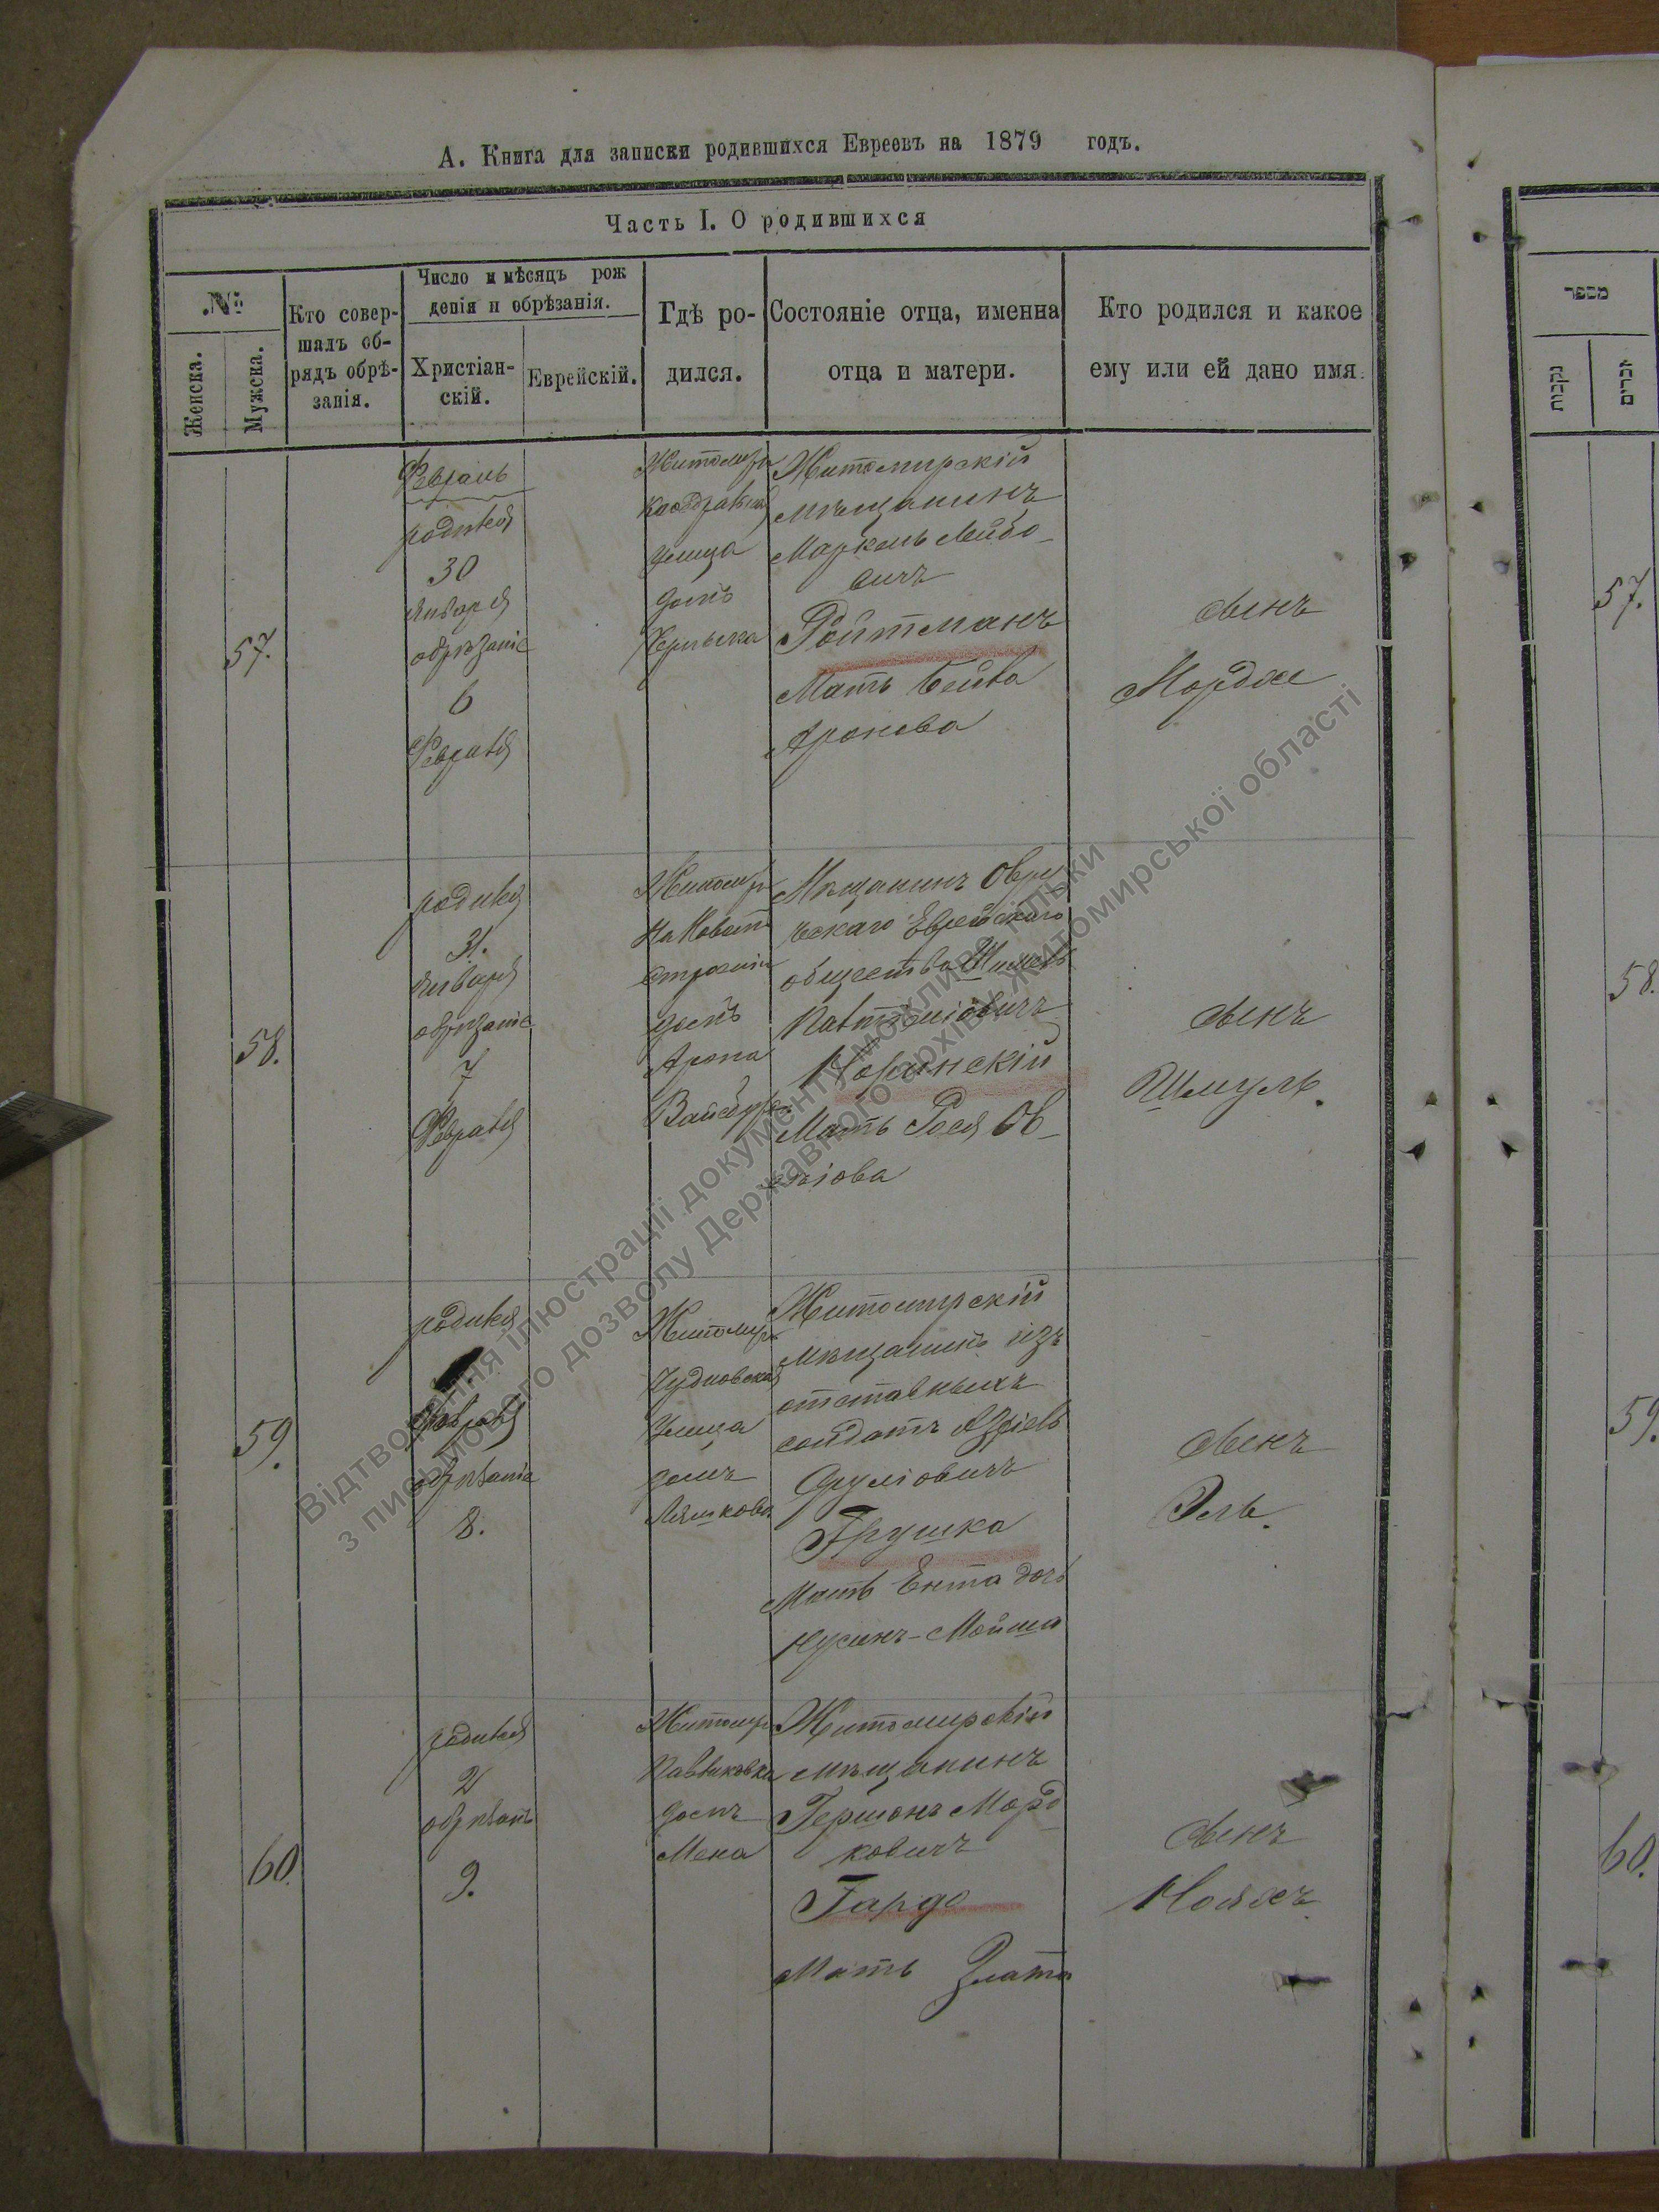 А. Книга для записки родившихся Евреевъ на 1879 годъ.
Часть I. О родившихся
№
Женска.
Мужска.
Кто совер-
шалъ об-
рядъ обрѣ-
занія.
Число и мѣсяцъ рож
денія и обрѣзанія.
Христіан-
скій.
Еврейскій.
Гдѣ ро-
дился.
Состояніе отца, именна
отца и матери.
Кто родился и какое
ему или ей дано имя.
57.
Февраль
родился
30
Января
обрѣзаніе
6
Февраля
Житомиръ
улица
домъ
Житомирскій
мѣщанинъ
Маркель Лейбо-
вичъ
Ройтманъ
Мать Бейла
Аронова
сынъ
Мордхе
58.
родился
31.
Января
обрѣзаніе
7
Февраля
Житомиръ
строеніи
домъ
Арона
Мѣщанинъ Овру
ческаго Еврейскаго
общества
Мать Рося Ов-
сынъ
Шмуль.
59.
родился
Февраля
обрѣзаніе
8.
Житомиръ
Чудновская
Улица
домъ
Житомирскій
мѣщанинъ изъ
отставныхъ
солдатъ
Сруліовичъ
Грушка
Мать Ента дочь
Нусинъ-Мойша
сынъ
Эль.
60.
родился
2
9.
Житомиръ
домъ
Житомирскій
мѣщанинъ
Гершонъ Морд
ковичъ
Мать Злата
сынъ
מספר
נקבות
זכרים
57.
58.
59.
60.
Відтворення ілюстрації документу можливе тільки
з письмового дозволу Державного архіву Житомирської області